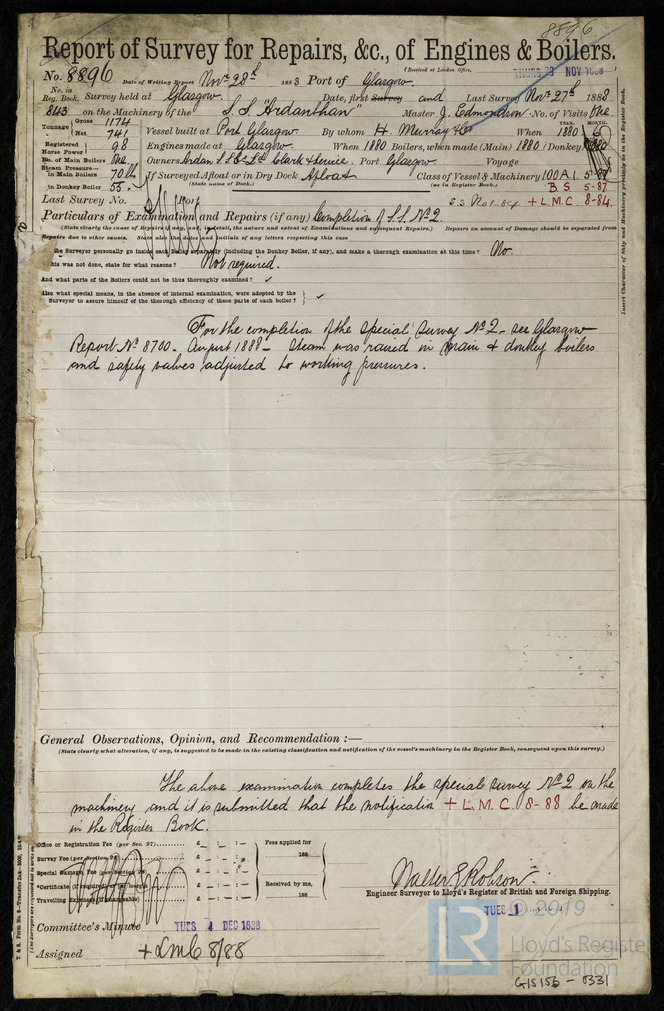 8896
Report of Survey for Repairs, &c., of Engines & Boilers.
(Received at London Office,
No. 8896 Date of Writing Report Nov 28th 1888 Port of Glasgow. THURS 29 NOV 1888
No. in Reg. Book. Survey held at Glasgow. Date, first Survey and Last Survey Nov 27th 1888
843 on the Machinery of the S.S. "Ardanbhan" Master J. Edmondson No. of Visits One
Tonnage Gross 1174 Net 741 Vessel built at Port Glasgow By whom H. Murray & Co When 1880 6
YEAR. MONTH.
Registered Horse Power 98 Engines made at Glasgow When 1880 Boilers, when made (Main) 1880 (Donkey) 1880
No. of Main Boilers One Owners Ardan S.S. Co Ld Clark & Service. Port Glasgow Voyage
Steam Pressure in Main Boilers 70 lb If Surveyed Afloat or in Dry Dock Afloat Class of Vessel & Machinery 100 A.1. 5-87
in Donkey Boiler 55 (State name of Dock.) (as in Register Book.) B.S. 5-87
Last Survey No. Port S.S. No 1-84 + L.M.C. 8-84
Particulars of Examination and Repairs (if any) Completion of S.S. No 2
(State clearly the cause of Repairs if any, and, in detail, the nature and extent of Examinations and subsequent Repairs.) Repairs on account of Damage should be separated from
Repairs due to other causes. State also the dates and initials of any letters respecting this case
the Surveyor personally go inside each Boiler separately (including the Donkey Boiler, if any), and make a thorough examination at this time? No.
this was not done, state for what reasons? Not required.
And what parts of the Boilers could not be thus thoroughly examined? ✓
Also what special means, in the absence of internal examination, were adopted by the
Surveyor to assure himself of the thorough efficiency of those parts of each boiler? ✓
Insert Character of Ship and Machinery precisely as in the Register Book.
For the completion of the special survey No 2 - see Glasgow
Report No 8700 - August 1888 - Steam was raised in main & donkey boilers
and safety valves adjusted to working pressures.
General Observations, Opinion, and Recommendation :—
(State clearly what alteration, if any, is suggested to be made in the existing classification and notification of the vessel's machinery in the Register Book, consequent upon this survey.)
The above examination completes the special survey No 2 on the
machinery and it is submitted that the notification + L.M.C. 8-88 be made
in the Register Book.
Office or Registration Fee (per Sec. 27) £ Fees applied for
Survey Fee (per Section 28) £ 188
Special Damage Fee (per Section 28) £
*Certificate (if required) as per margin £ Received by me,
Travelling Expenses (if chargeable) £ 188
Walter J. Robson
Engineer Surveyor to Lloyd's Register of British and Foreign Shipping.
TUES 1
Committee's Minute TUES 4 DEC 1888
Assigned + LMC 8/88
© 2019
LR
Lloyd's Register
Foundation
GLS156-0331